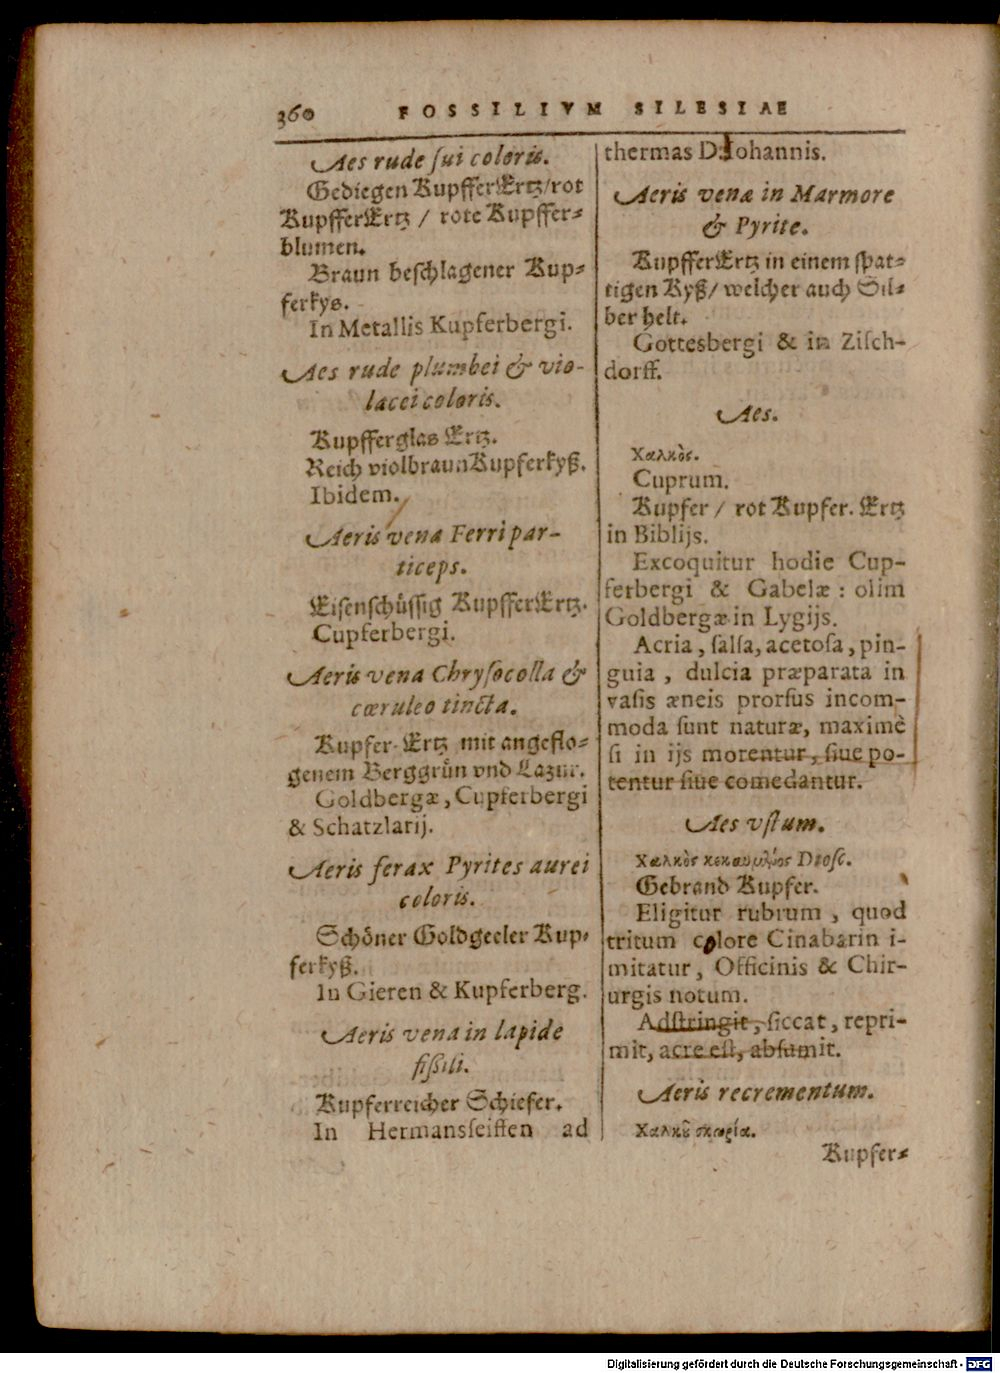 360 FOSSILIVM SILESIAE
Aes rude sui coloris.
Gediegen KupfferErtz/rot
KupfferErtz / rote Kupffer-
blumen.
Braun beschlagener Kup-
ferkys.
In Metallis Kupferbergi.
Aes rude plumbei & vio-
lacei coloris.
Kupfferglas Ertz.
Reich violbraunKupferkyß.
Ibidem.
Aeris vena Ferri par-
ticeps.
Eisenschüssig KupfferErtz.
Cupferbergi.
Aeris vena Chrysocolla &
cœruleo tincta.
Kupfer-Ertz mit angeflo-
genem Berggrün vnd Lazur.
Goldbergæ, Cupferbergi
& Schatzlarij.
Aeris ferax Pyrites aurei
coloris.
Schöner Goldgeeler Kup-
ferkyß.
In Gieren & Kupferberg.
Aeris vena in lapide
fißili.
Kupferreicher Schiefer.
In Hermansseiffen ad
thermas D. Iohannis.
Aeris venæ in Marmore
& Pyrite.
KupfferErtz in einem spat-
tigen Kyß/ welcher auch Sil-
ber helt.
Gottesbergi & in Zisch-
dorff.
Aes.
Χαλκὸς.
Cuprum.
Kupfer / rot Kupfer. Ertz
in Biblijs.
Excoquitur hodie Cup-
ferbergi & Gabelæ : olim
Goldbergæ in Lygijs.
Acria, salsa, acetosa, pin-
guia, dulcia præparata in
vasis æneis prorsus incom-
moda sunt naturæ, maximè
si in ijs morentur, siue po-
tentur siue comedantur.
Aes vstum.
Χαλκὸς κεκαυμένος Diosc.
Gebrand Kupfer.
Eligitur rubrum, quod
tritum colore Cinabarin i-
mitatur, Officinis & Chir-
urgis notum.
Adstringit, siccat, repri-
mit, acre est, absumit.
Aeris recrementum.
Χαλκοῦ σκωρία.
Kupfer-
Digitalisierung gefördert durch die Deutsche Forschungsgemeinschaft - DFG